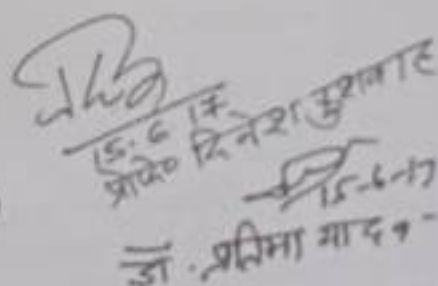 15.6.17
प्रो० दिनेश कुशवाह
15-6-17
डॉ. प्रतिमा यादव